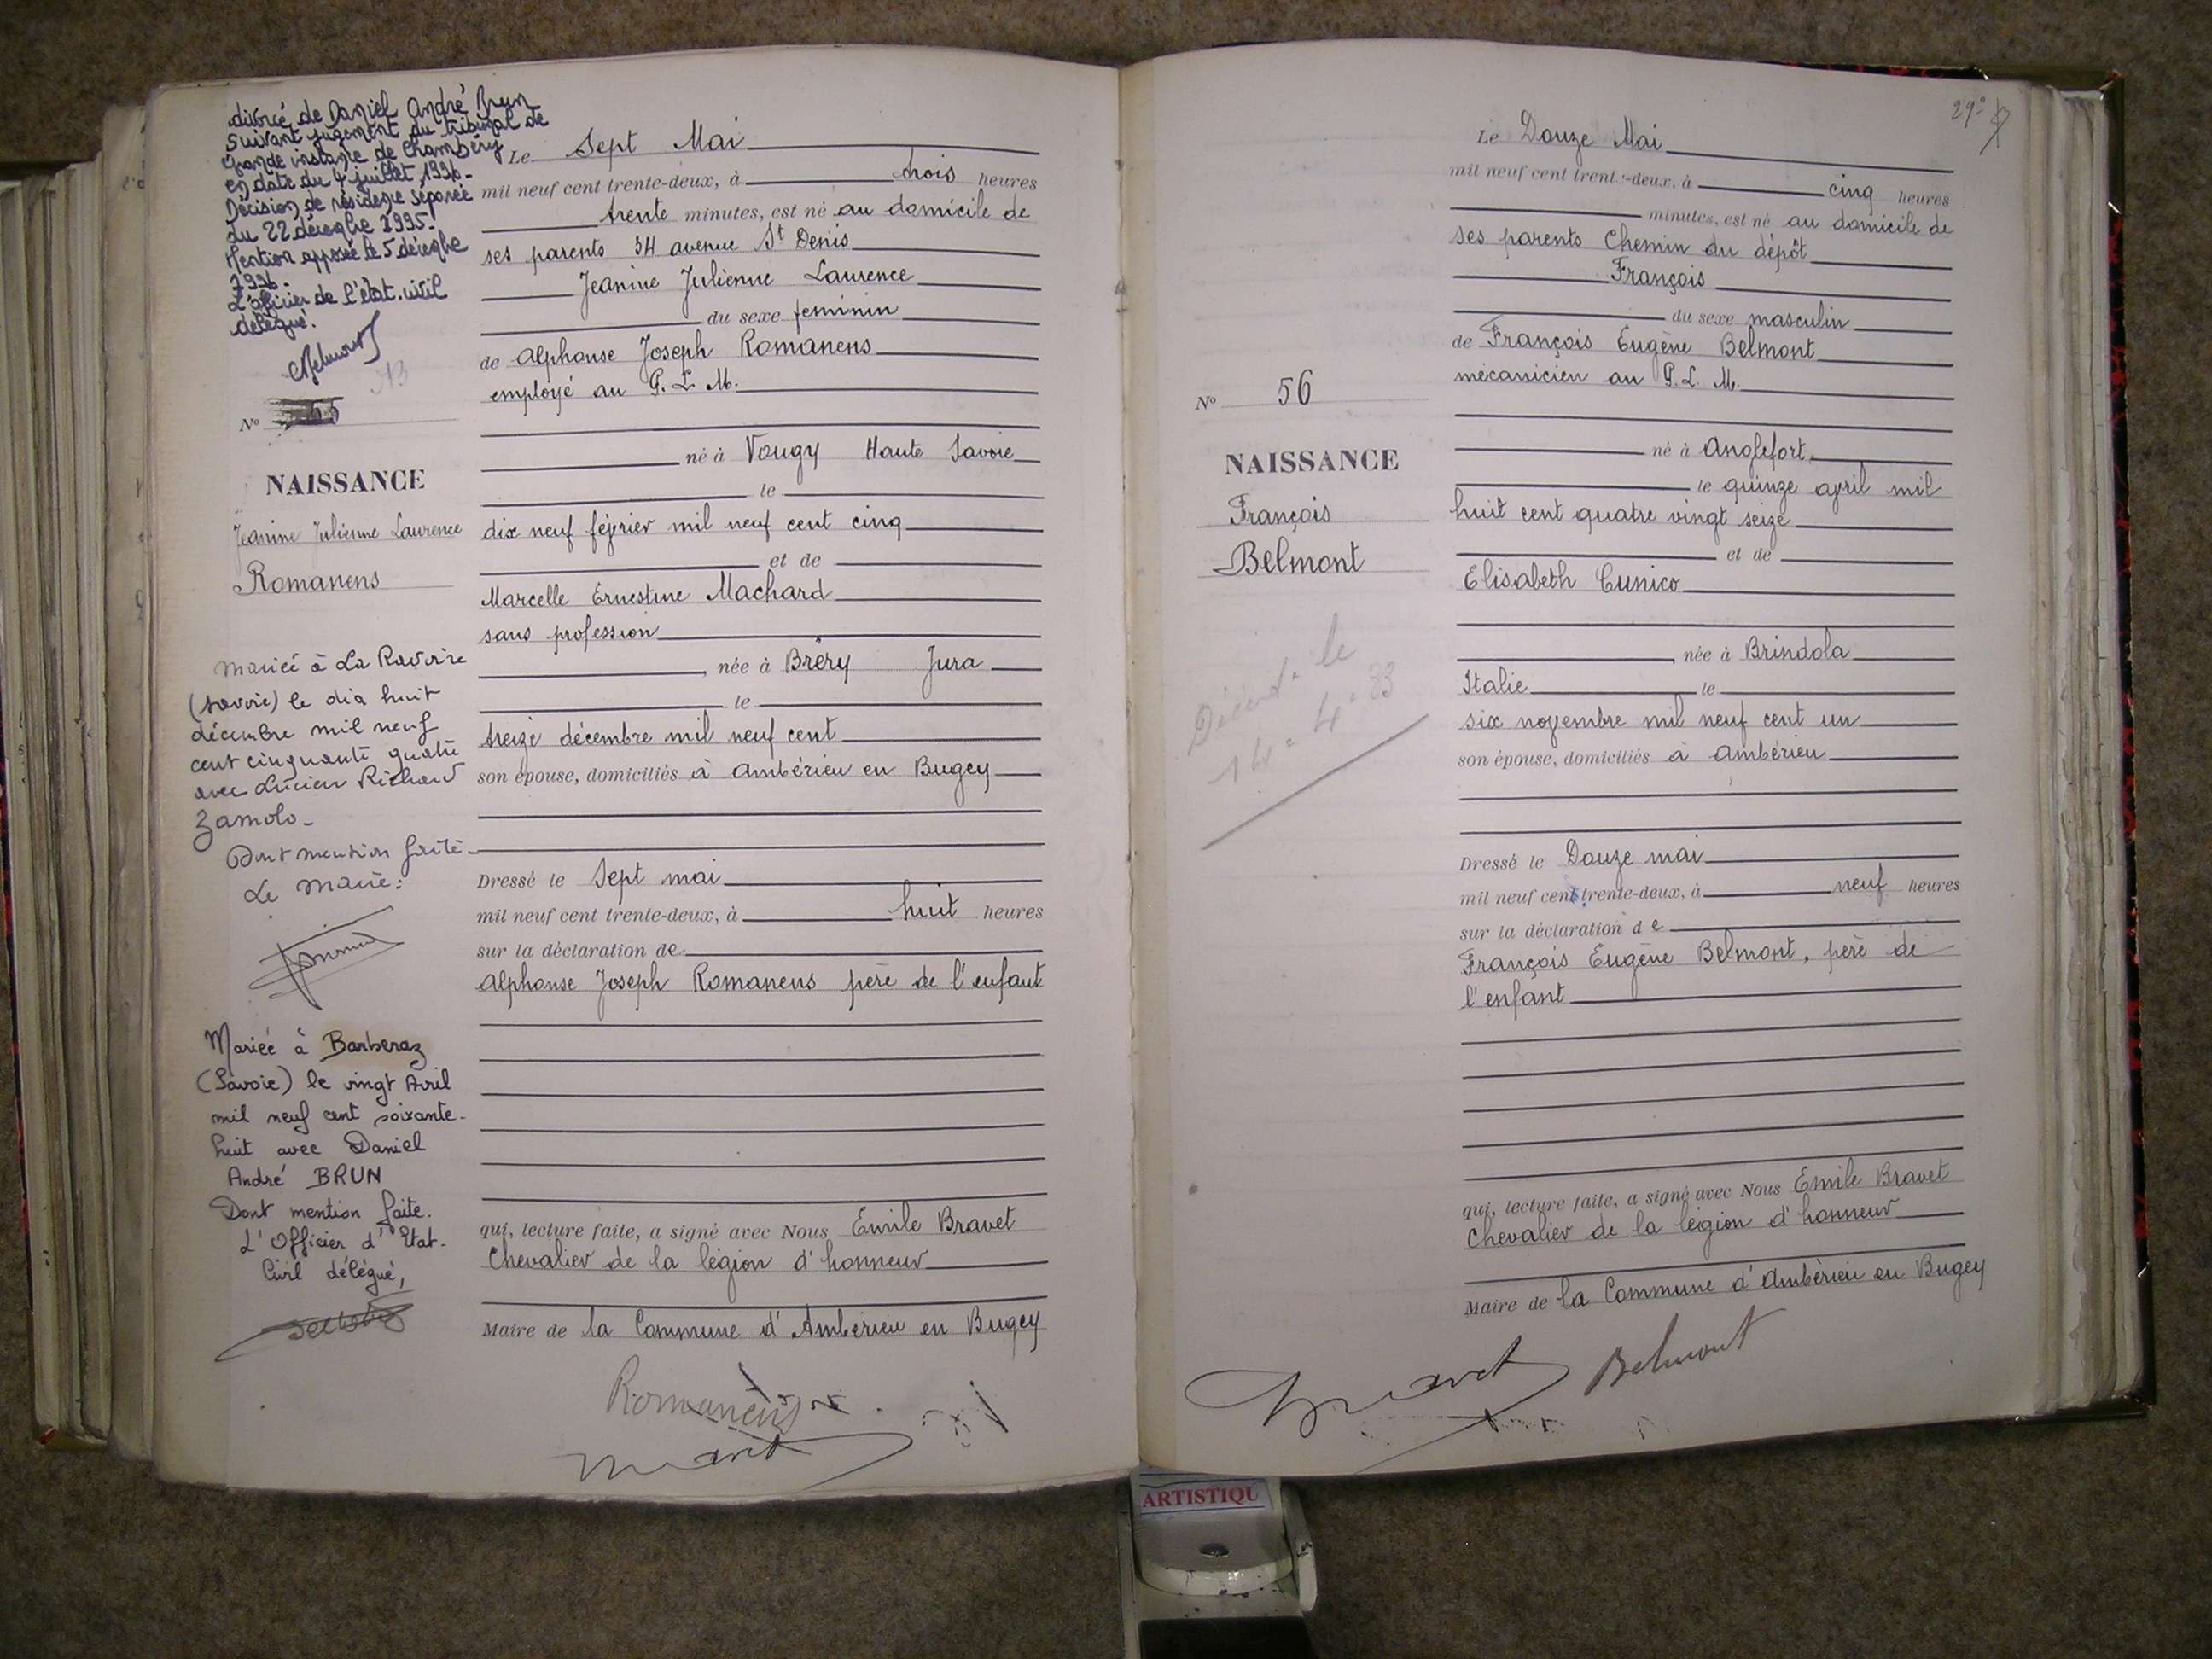 divorcé de Daniel André Brun
suivant jugement du tribunal de
Grande instance de Chambéry
en date du 4 juillet 1996-
Décision de résidence séparée
du 22 décembre 1995-
Mention apposée le 5 décembre
1996-
L'officier de l'état-civil
délégué.
Nº
NAISSANCE
Jeanine Julienne Laurence
Romanens
Mariée à La Ravoire
(Savoie) le dix huit
décembre mil neuf
cent cinquante quatre
avec Lucien Richard
Zamolo-
Dont mention faite-
Le Maire:
Mariée à Barberaz
(Savoie) le vingt Avril
mil neuf cent soixante-
huit avec Daniel
André BRUN
Dont mention faite.
L'Officier d'Etat-
Civil délégué,
Le Sept Mai
mil neuf cent trente-deux, à trois heures
trente minutes, est né au domicile de
ses parents 34 avenue St Denis
Jeanine Julienne Laurence
du sexe feminin
de Alphonse Joseph Romanens
employé au P. L. M.
né à Vougy Haute Savoie
le
dix neuf février mil neuf cent cinq
et de
Marcelle Ernestine Machard
sans profession
, née à Brèry Jura
le
treize décembre mil neuf cent
son épouse, domiciliés à Ambérieu en Bugey
Dressé le Sept mai
mil neuf cent trente-deux, à huit heures
sur la déclaration de
Alphonse Joseph Romanens père de l'enfant
qui, lecture faite, a signé avec Nous Emile Bravet
Chevalier de la légion d'honneur
Maire de la Commune d'Ambérieu en Bugey
Romanens
29º
Nº 56
NAISSANCE
François
Belmont
Décédé le
14-4-33
Le Douze Mai
mil neuf cent trente-deux, à cinq heures
minutes, est né au domicile de
ses parents Chemin du dépôt
François
du sexe masculin
de François Eugène Belmont
mécanicien au P. L. M.
né à Anglefort,
le quinze avril mil
huit cent quatre vingt seize
et de
Elisabeth Cunico
, née à Brindola
Italie le
six novembre mil neuf cent un
son épouse, domiciliés à Ambérieu
Dressé le Douze mai
mil neuf cent trente-deux, à neuf heures
sur la déclaration de
François Eugène Belmont, père de
l'enfant
qui, lecture faite, a signé avec Nous Emile Bravet
Chevalier de la légion d'honneur
Maire de la Commune d'Ambérieu en Bugey
Bravet Belmont
ARTISTIQU